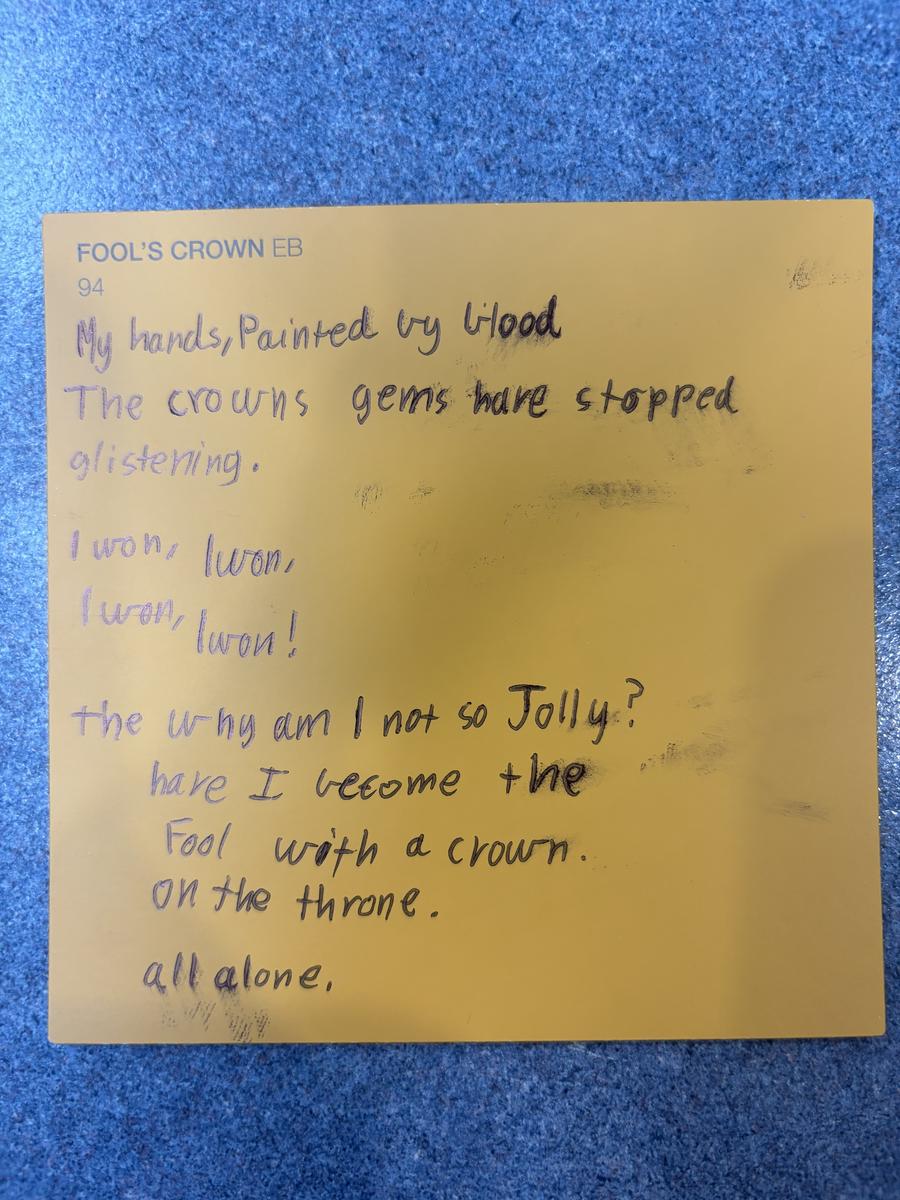 FOOL'S CROWN EB
94
My hands, Painted by blood
The crowns gems have stopped
glistening.
I won, I won,
I won, I won!
the why am I not so Jolly?
have I become the
Fool with a crown.
on the throne.
all alone.